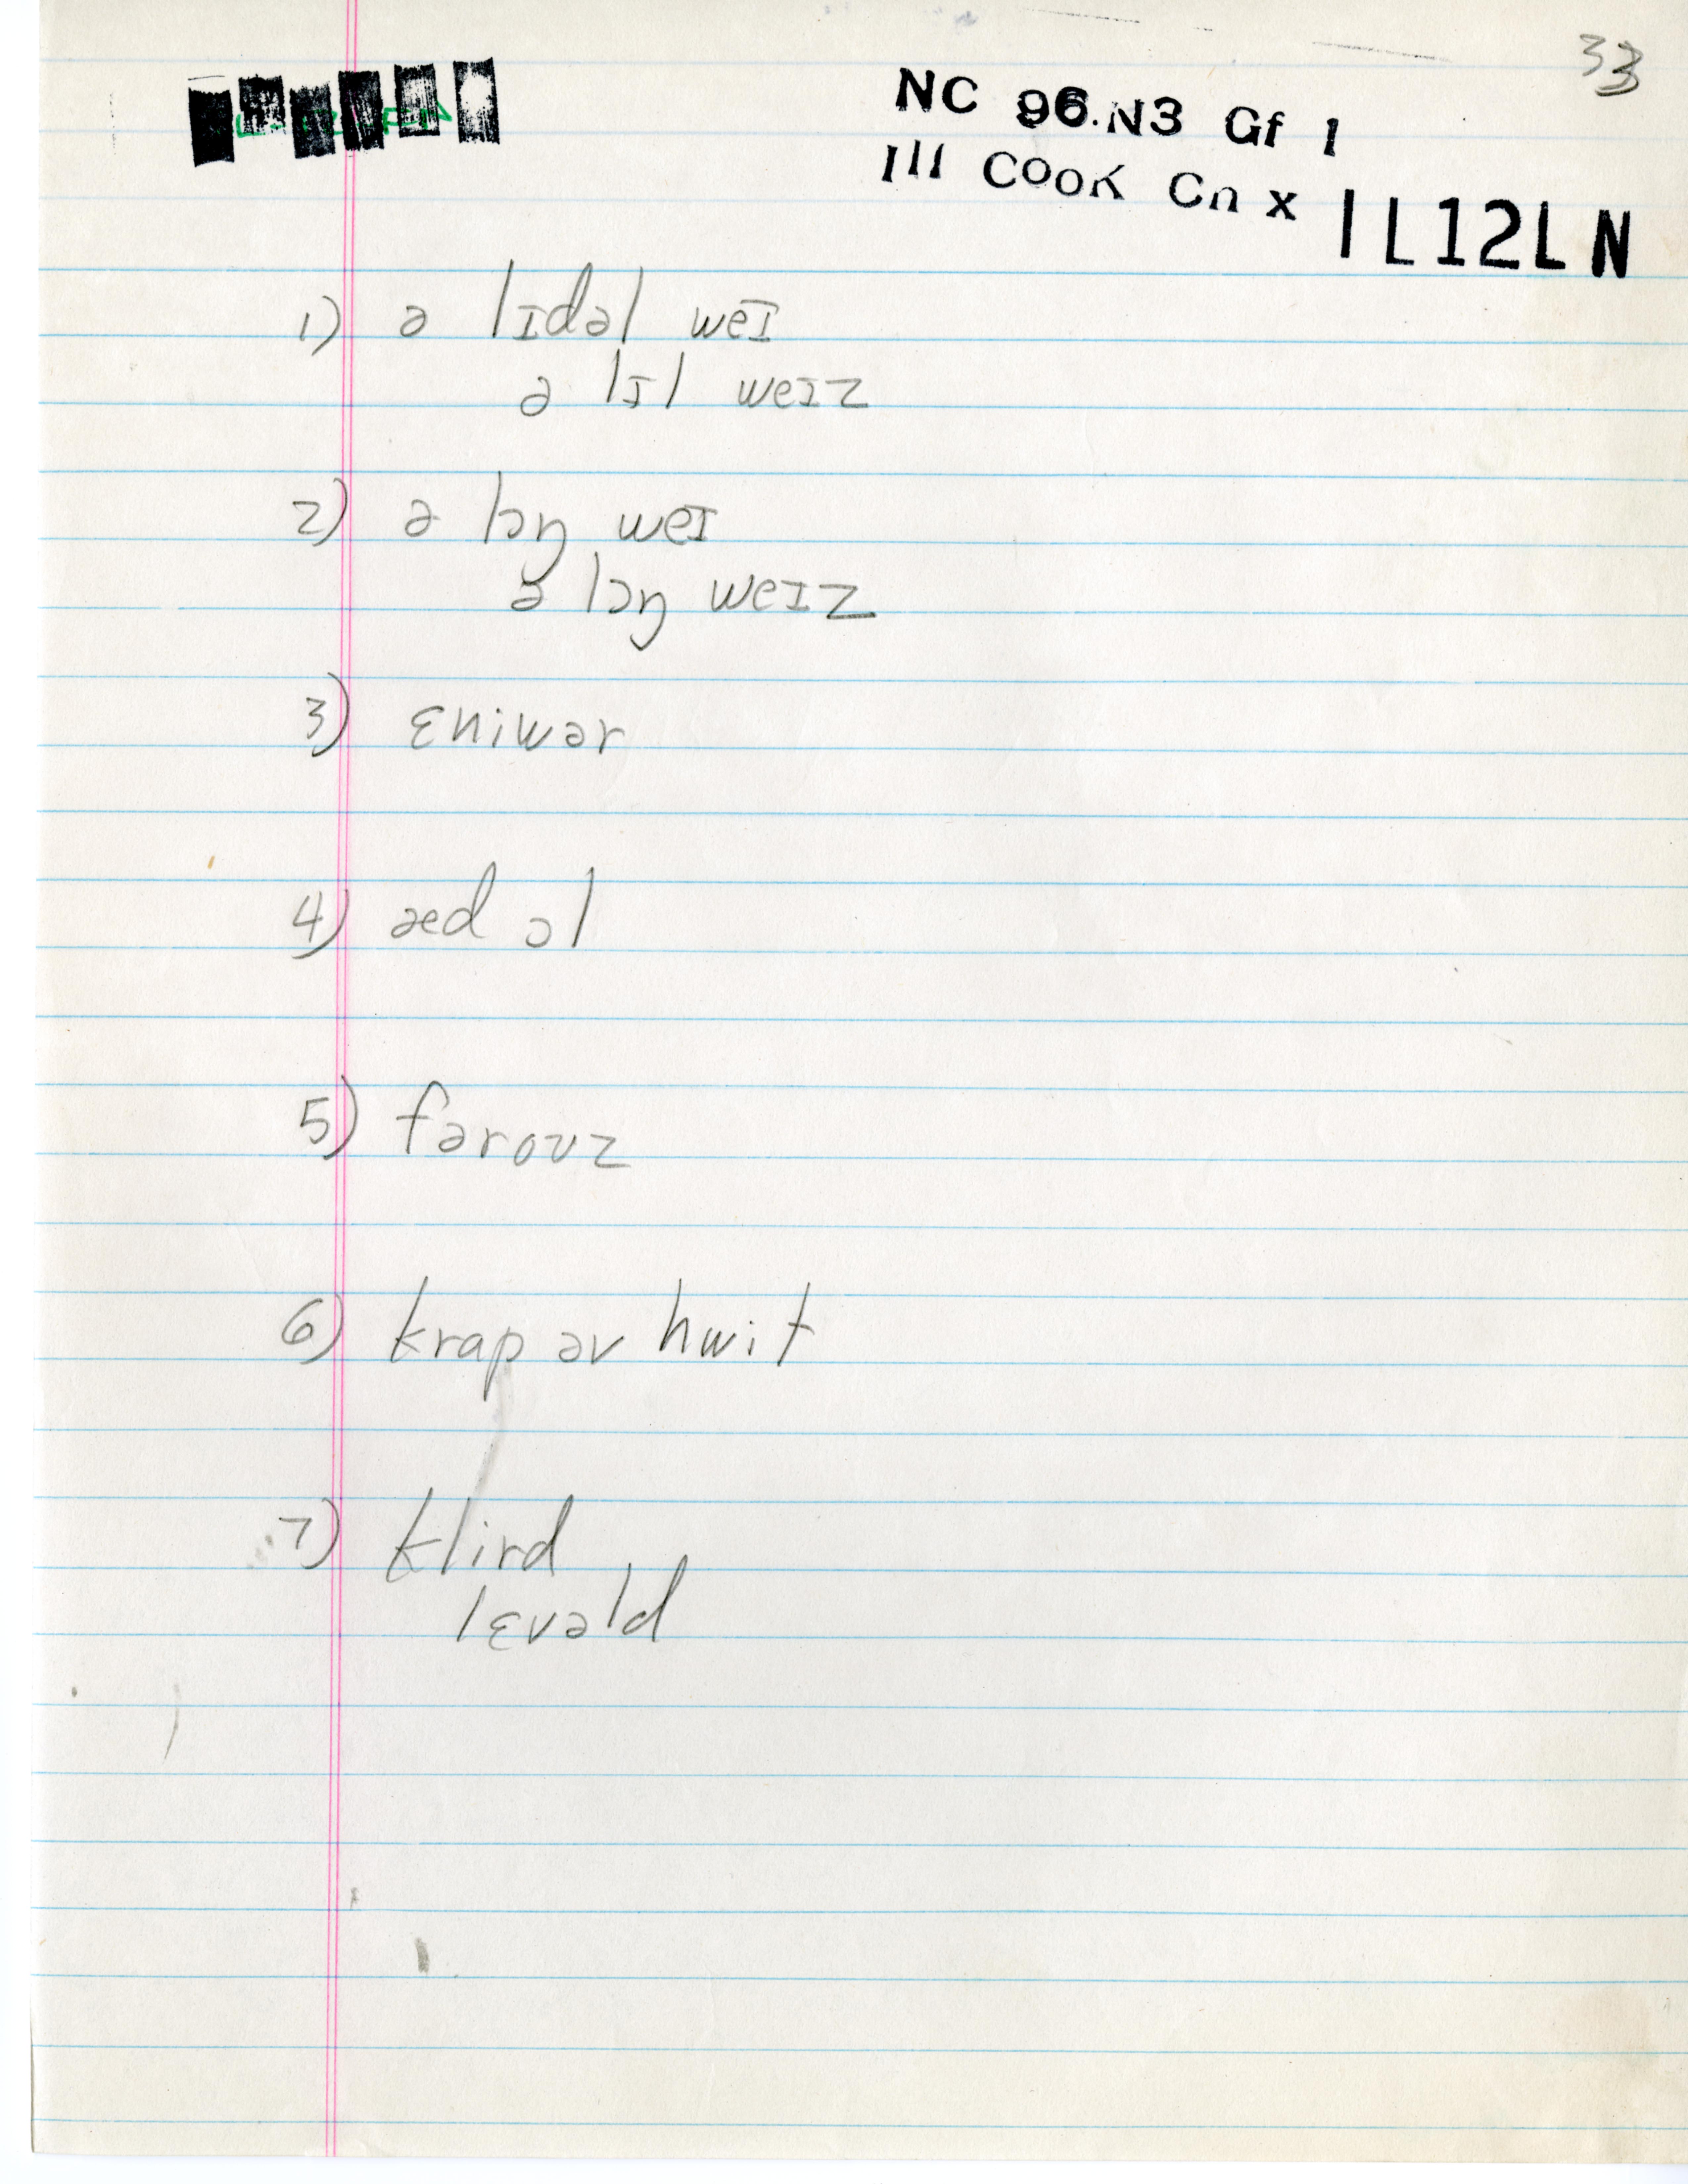 33
NC 96.N3 Gf 1
Ill COOK Cn x 1L12LN
1) ə lɪdəl weɪ
ə lɪl weɪz
2) ə lɔŋ weɪ
ə lɔŋ weɪz
3) ɛniwər
4) æd ɔl
5) fərouz
6) krap əv hwit
7) klird
lɛvəld